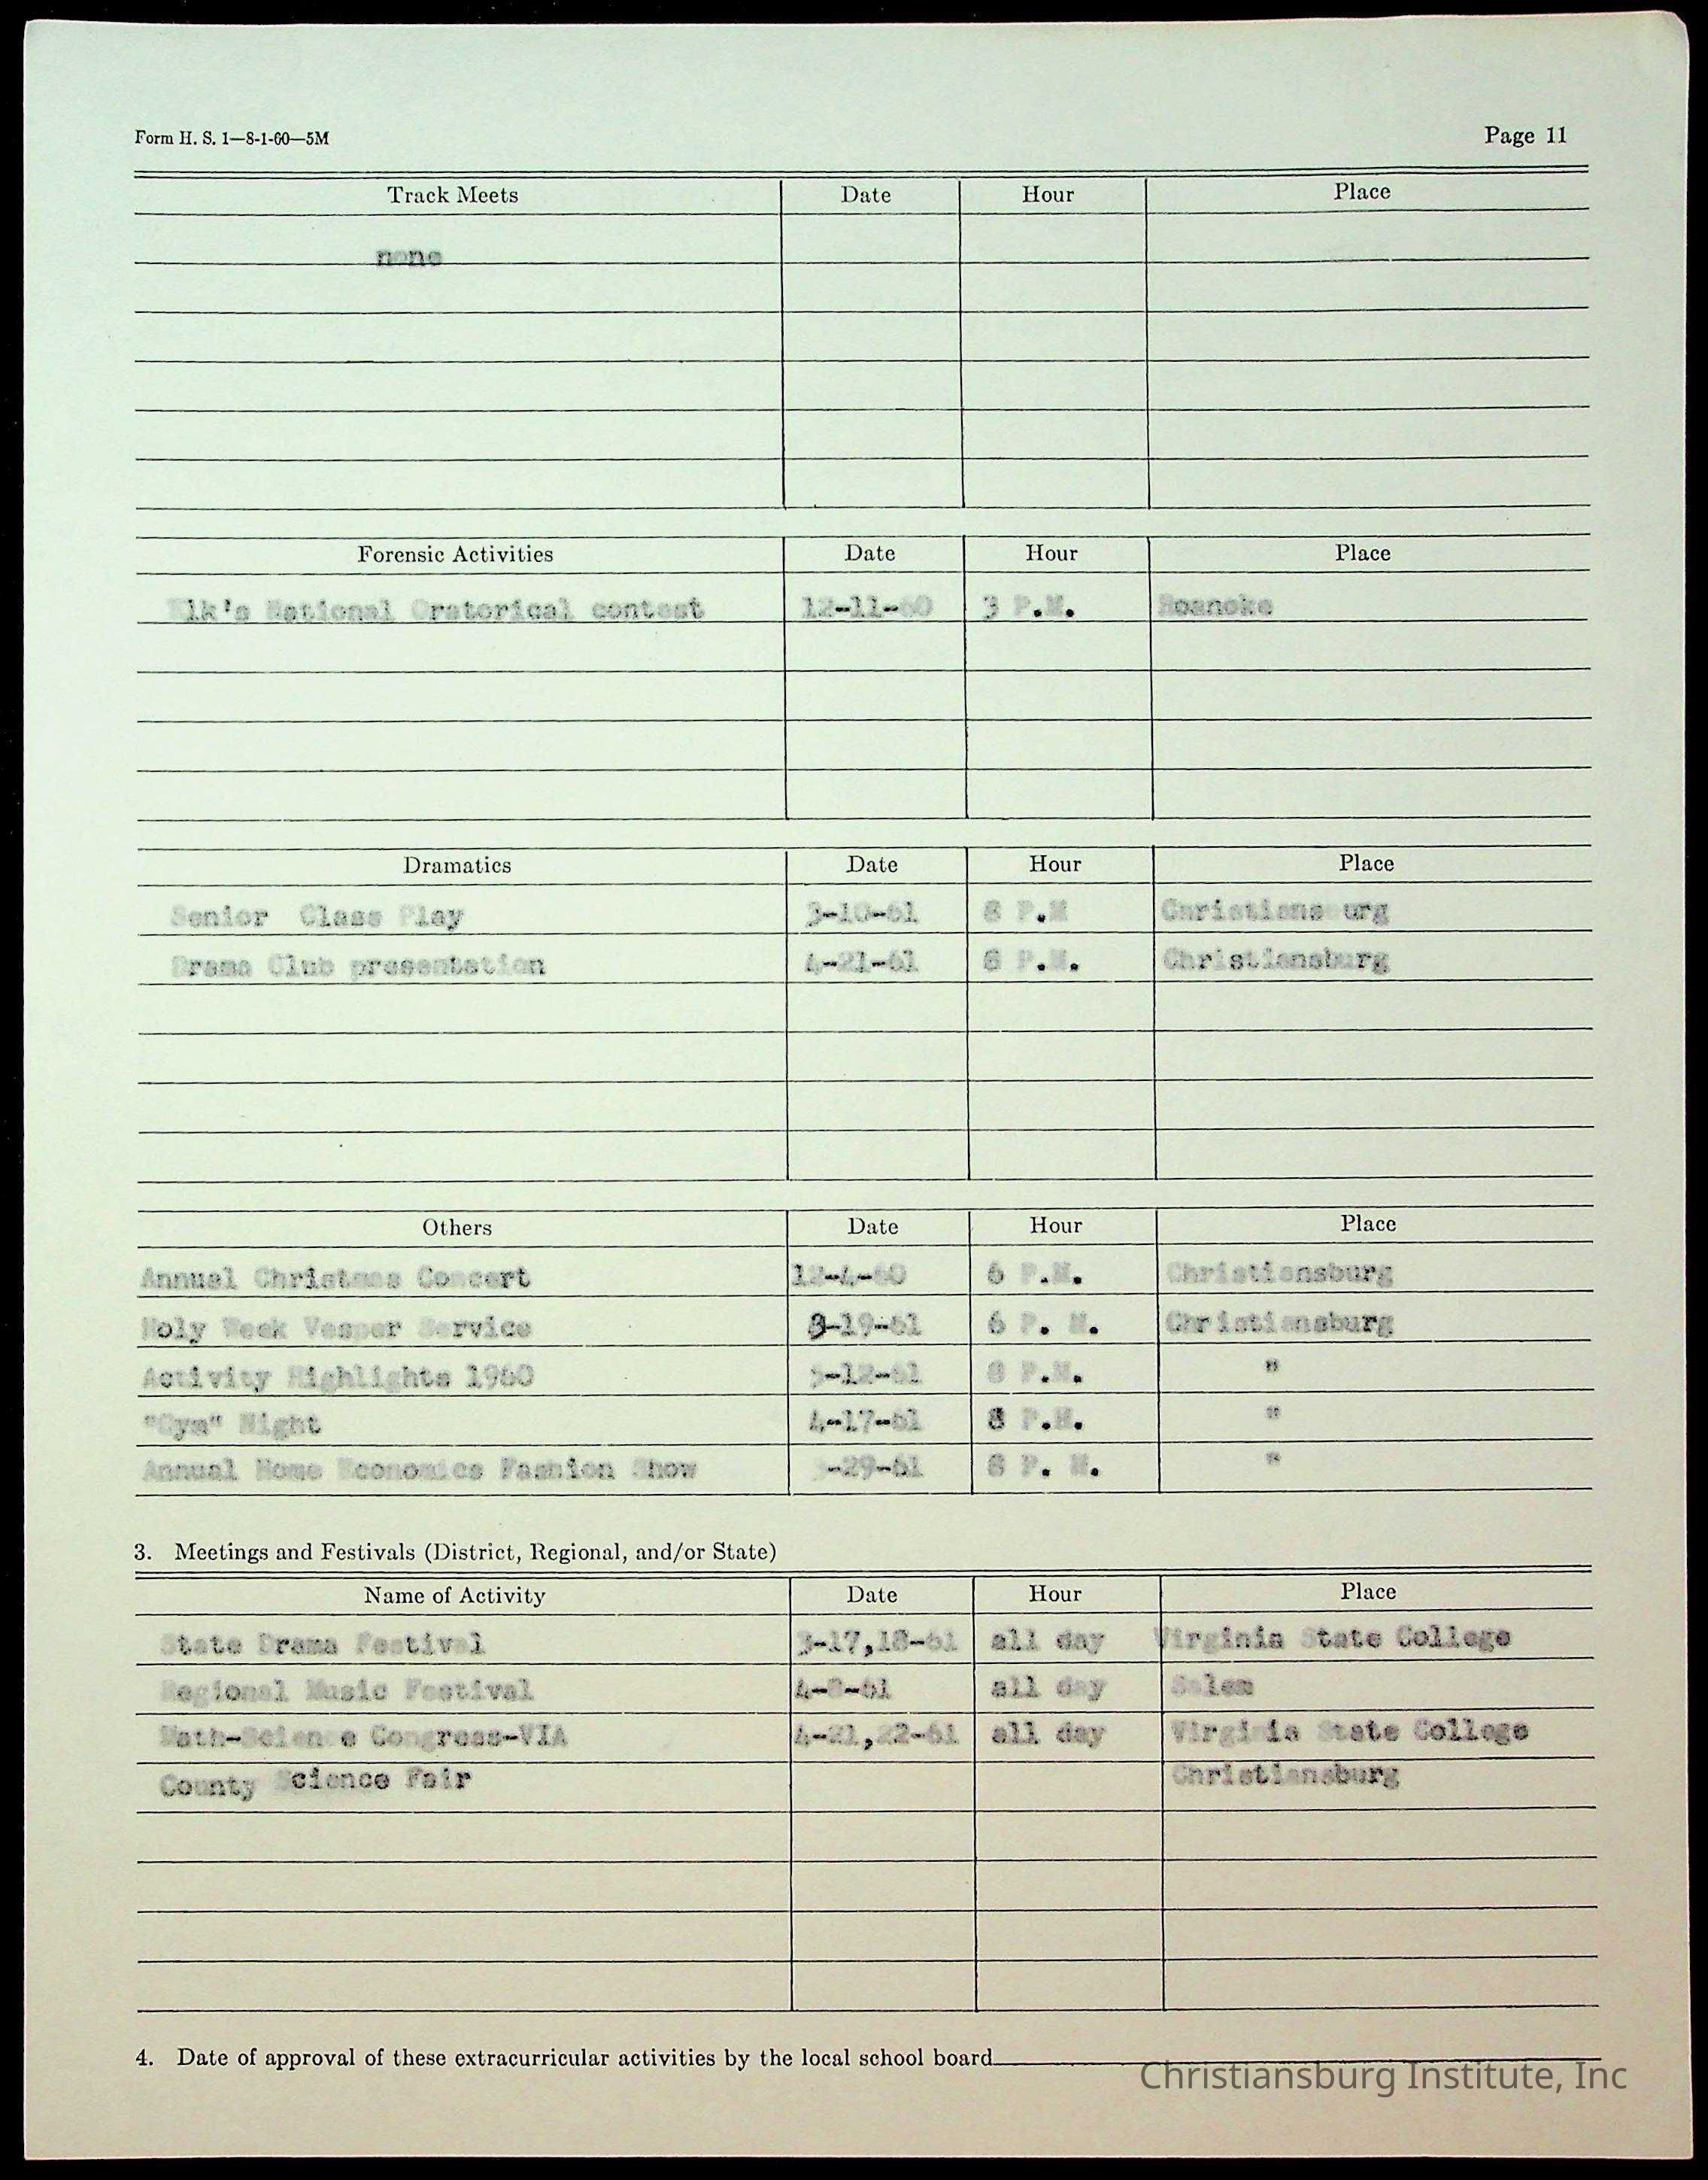 Form H. S. 1—8-1-60—5M Page 11
Track Meets Date Hour Place
none
Forensic Activities Date Hour Place
Elk's National Oratorical contest 12-11-60 3 P.M. Roanoke
Dramatics Date Hour Place
Senior Class Play 3-10-61 8 P.M Christiansburg
Drama Club presentation 4-21-61 8 P.M. Christiansburg
Others Date Hour Place
Annual Christmas Concert 12-4-60 6 P.M. Christiansburg
Holy Week Vesper Service 3-19-61 6 P. M. Christiansburg
Activity Highlights 1960 8 P.M. "
"Gym" Night 4-17-61 8 P.M. "
Annual Home Economics Fashion Show -29-61 8 P. M. "
3. Meetings and Festivals (District, Regional, and/or State)
Name of Activity Date Hour Place
State Drama Festival 3-17,18-61 all day Virginia State College
Regional Music Festival all day Salem
Math-Science Congress-VIA 4-21,22-61 all day Virginia State College
County Science Fair Christiansburg
4. Date of approval of these extracurricular activities by the local school board
Christiansburg Institute, Inc